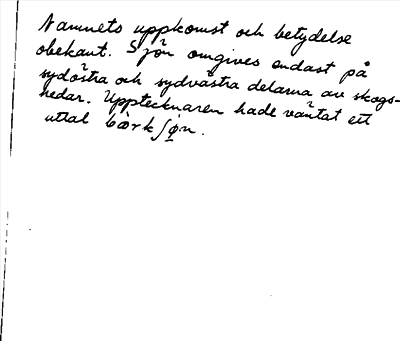 Namnets uppkomst och betydelse
obekant. Sjön omgives endast på
sydöstra och sydvästra delarna av skogs-
hedar. Upptecknaren hade väntat ett
uttal